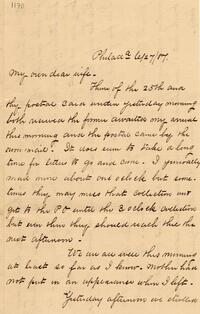 1130
Philada 6/27/87.
My own dear wife.
Thine of the 25th and
thy postal card written yesterday morning
both received the former awaited my arrival
this morning and the postal came by the
own mail. It does seem to take a long
time for letters to go and come. I generally
mail mine about one oclock but some
times they may miss that collection and
get to the PO until the 3 oclock collection
but even then they should reach thee the
next afternoon.
We are all well this morning
at least so far as I know. Mother had
not put in an appearance when I left.
Yesterday afternoon we strolled